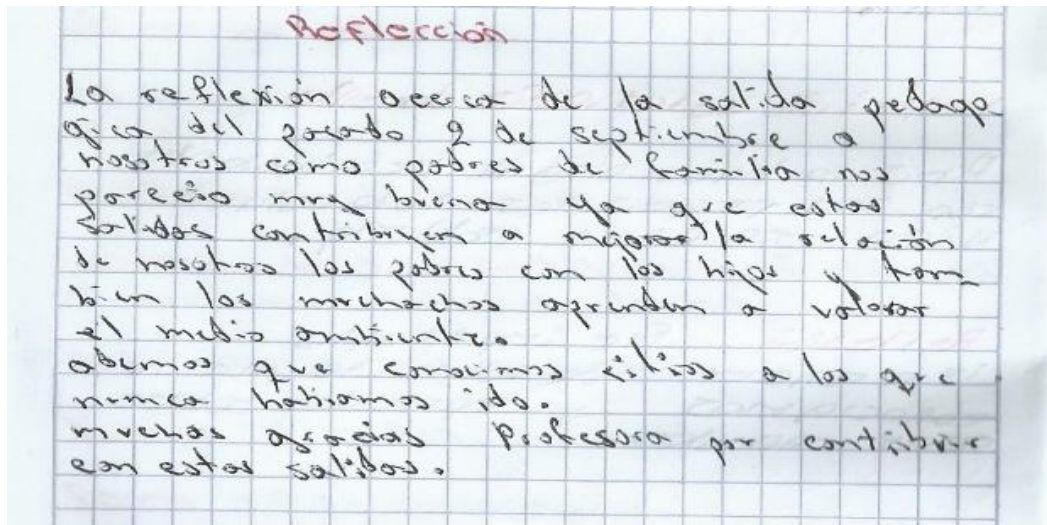 Reflección
La reflexión acerca de la salida pedago
gica del pasado 2 de septiembre a
nosotros como padres de familia nos
pareció muy buena ya que estas
salidas contribuyen a mejorar la relación
de nosotros los padres con los hijos y tam
bien los muchachos aprenden a valorar
el medio ambiente.
abemos que conocimos sitios a los que
nunca habiamos ido.
muchas gracias Profesora por contribuir
con estas salidas.